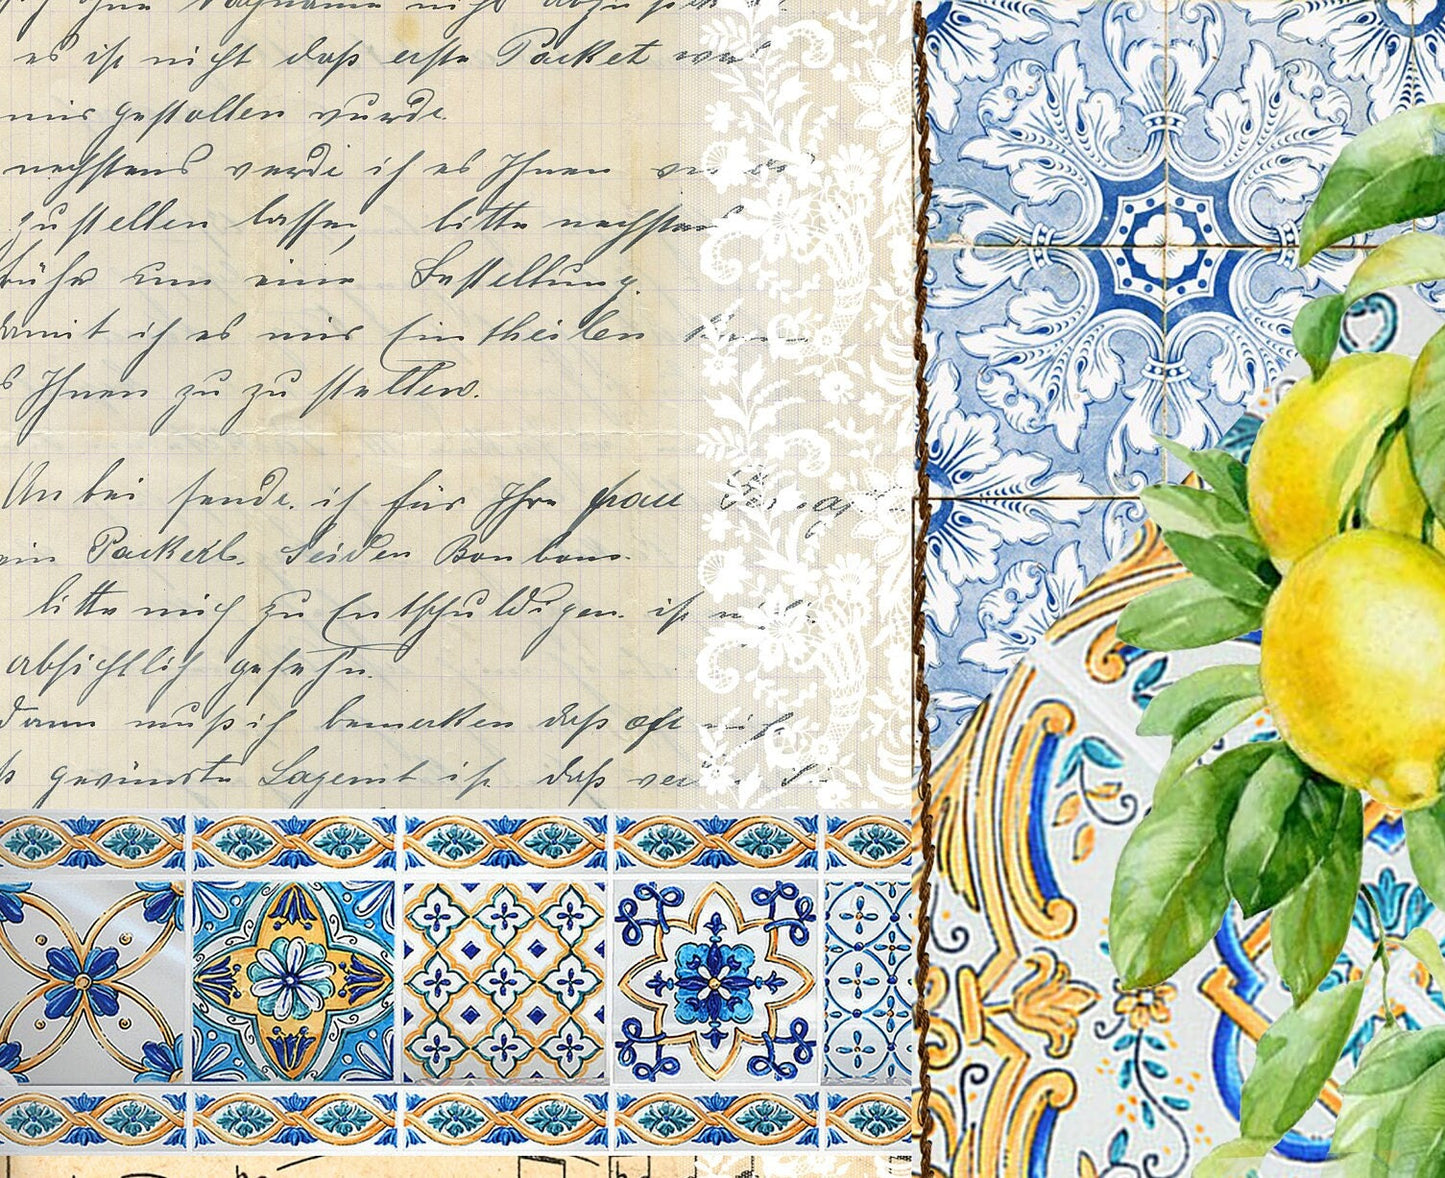 es ist nicht daß erste Packet was
mir gestollen wurde.
nechstens werde ich es Ihnen
zustellen lassen, bitte nechstens
um eine Bestellung.
damit ich es mir Eintheilen kann
Ihnen zu zu stellen.
Anbei sende ich für Ihre frau
ein Packerl. Seiden Bonbons.
bitte mich zu Entschuldigen. ist nicht
absichtlich gesehn.
dann muß ich bemerken daß oft nicht
gewünste Lagernt ist. daß